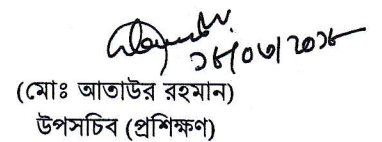 ১৮/০৩/২০১৮
(মোঃ আতাউর রহমান)
উপসচিব (প্রশিক্ষণ)